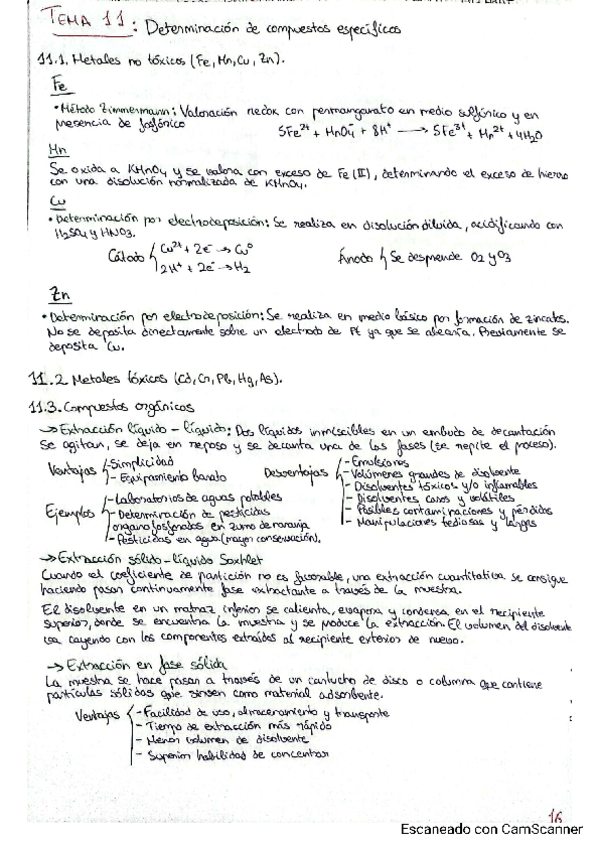 TEMA 11: Determinación de compuestos específicos
11.1. Metales no tóxicos (Fe, Mn, Cu, Zn).
Fe
• Método Zimmermann: Valoración redox con permanganato en medio sulfúrico y en
presencia de fosfórico 5Fe²⁺ + MnO₄⁻ + 8H⁺ → 5Fe³⁺ + Mn²⁺ + 4H₂O
Mn
Se oxida a KMnO₄ y se valora con exceso de Fe(II), determinando el exceso de hierro
con una disolución normalizada de KMnO₄.
Cu
• Determinación por electrodeposición: Se realiza en disolución diluida, acidificando con
H₂SO₄ y HNO₃.
Cátodo { Cu²⁺ + 2e⁻ → Cu⁰ Ánodo { Se desprende O₂ y O₃
2H⁺ + 2e⁻ → H₂
Zn
• Determinación por electrodeposición: Se realiza en medio básico por formación de zincatos.
No se deposita directamente sobre un electrodo de Pt ya que se alearía. Previamente se
deposita Cu.
11.2 Metales tóxicos (Cd, Cr, Pb, Hg, As).
11.3. Compuestos orgánicos
→ Extracción líquido - líquido: Dos líquidos inmiscibles en un embudo de decantación
se agitan, se deja en reposo y se decanta una de las fases (se repite el proceso).
Ventajas { - Simplicidad
- Equipamiento barato
Desventajas { - Emulsiones
- Volúmenes grandes de disolvente
- Disolventes tóxicos y/o inflamables
- Disolventes caros y volátiles
- Posibles contaminaciones y pérdidas
- Manipulaciones tediosas y largas
Ejemplos { - Laboratorios de aguas potables
- Determinación de pesticidas
organofosforados en zumo de naranja
- Pesticidas en agua (mayor conservación).
→ Extracción sólido - líquido Soxhlet
Cuando el coeficiente de partición no es favorable, una extracción cuantitativa se consigue
haciendo pasar continuamente fase extractante a través de la muestra.
El disolvente en un matraz inferior se calienta, evapora y condensa en el recipiente
superior, donde se encuentra la muestra y se produce la extracción. El volumen del disolvente
va cayendo con los componentes extraídos al recipiente exterior de nuevo.
→ Extracción en fase sólida
La muestra se hace pasar a través de un cartucho de disco o columna que contiene
partículas sólidas que sirven como material adsorbente.
Ventajas { - Facilidad de uso, almacenamiento y transporte
- Tiempo de extracción más rápido
- Menor volumen de disolvente
- Superior habilidad de concentrar
16
Escaneado con CamScanner